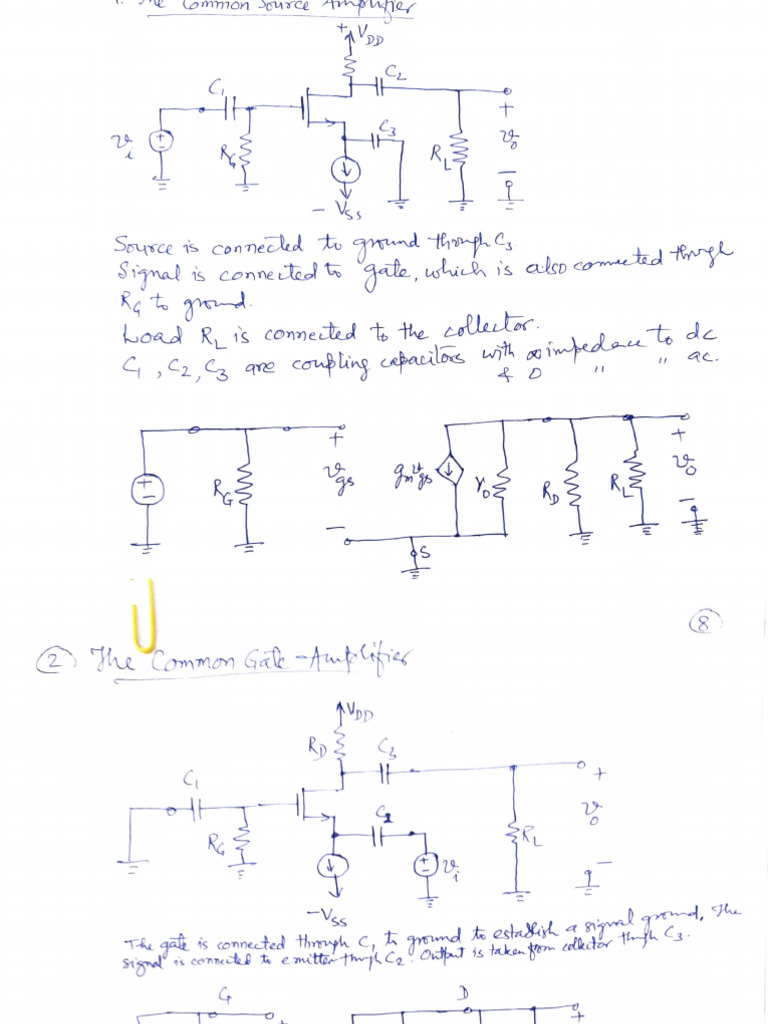 1. The Common Source Amplifier
+ VDD
C1
C2
C3
vi
RG
RL
+
vo
−
− VSS
Source is connected to ground through C3
Signal is connected to gate, which is also connected through
RG to ground.
Load RL is connected to the collector.
C1, C2, C3 are coupling capacitors with ∞ impedance to dc
& 0 " " ac.
+
vgs
−
RG
gmvgs
ro
RD
RL
+
vo
−
S
8
2 The Common Gate-Amplifier
VDD
RD
C3
C1
C2
RG
vi
RL
+
vo
−
−VSS
The gate is connected through C1 to ground to establish a signal ground. The
signal is connected to emitter through C2. Output is taken from collector through C3.
G
D
+
+